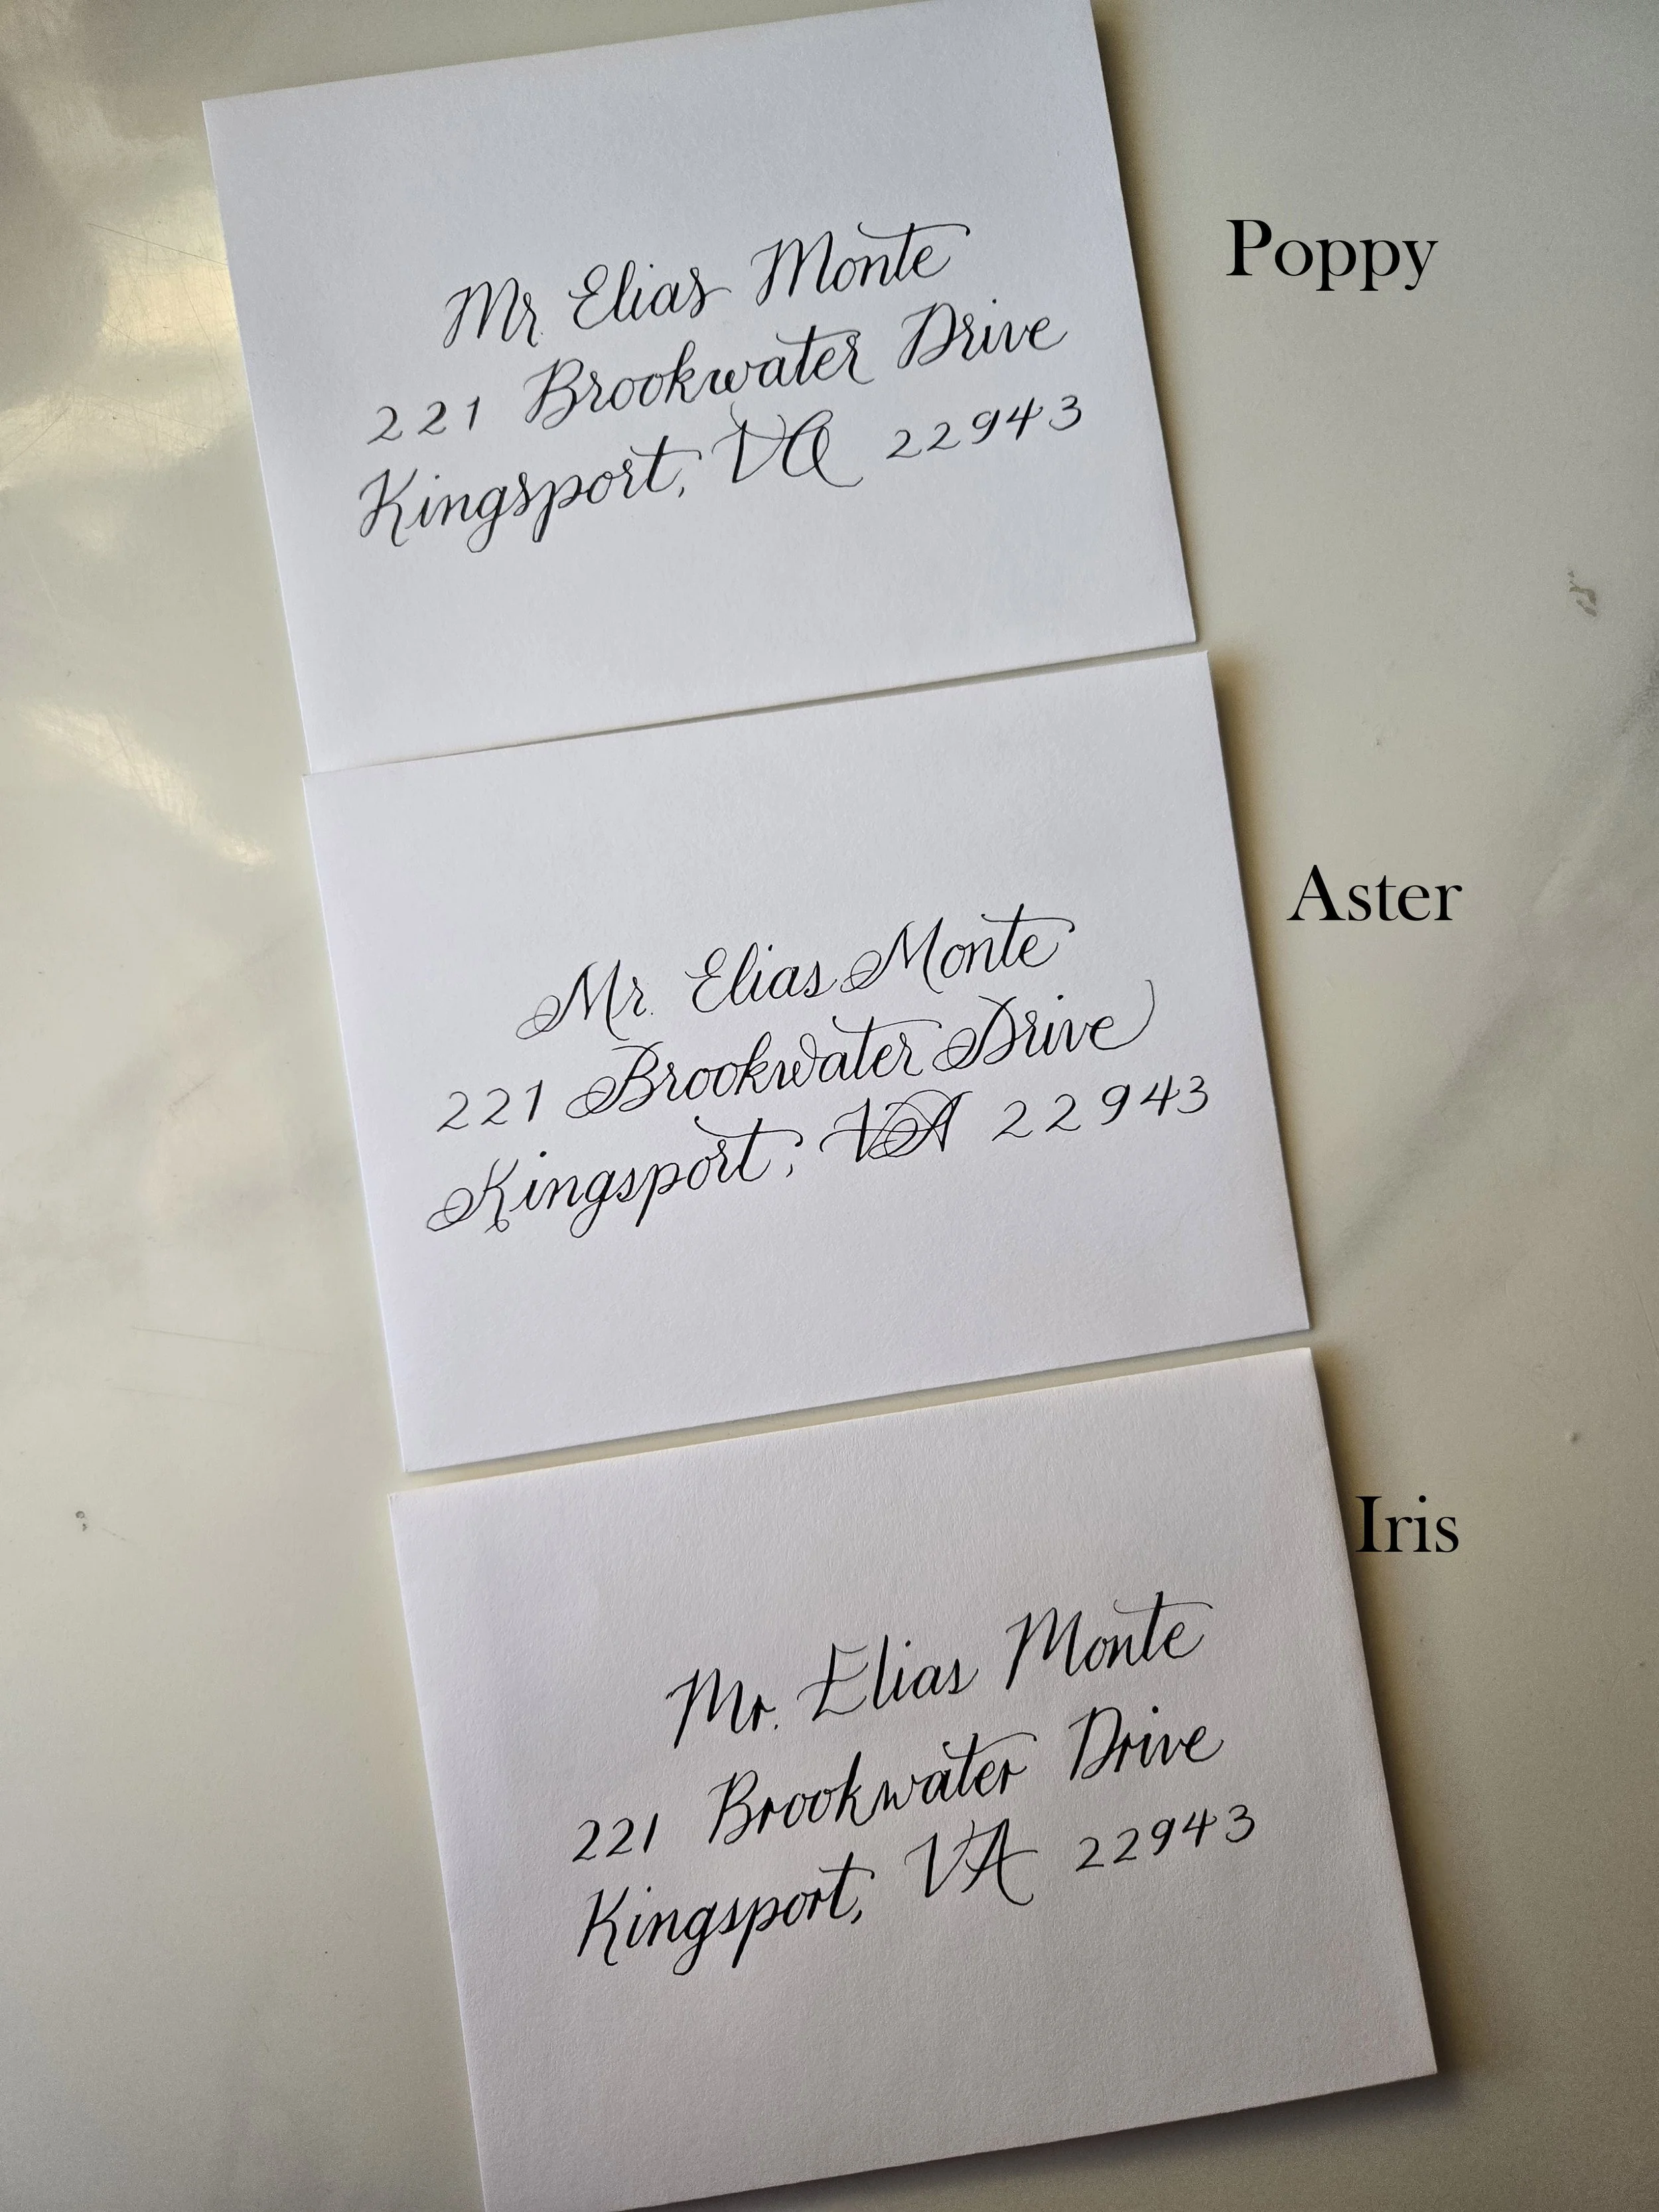 Mr. Elias Monte
221 Brookwater Drive
Kingsport, VA 22943
Poppy
Mr. Elias Monte
221 Brookwater Drive
Kingsport, VA 22943
Aster
Mr. Elias Monte
221 Brookwater Drive
Kingsport, VA 22943
Iris